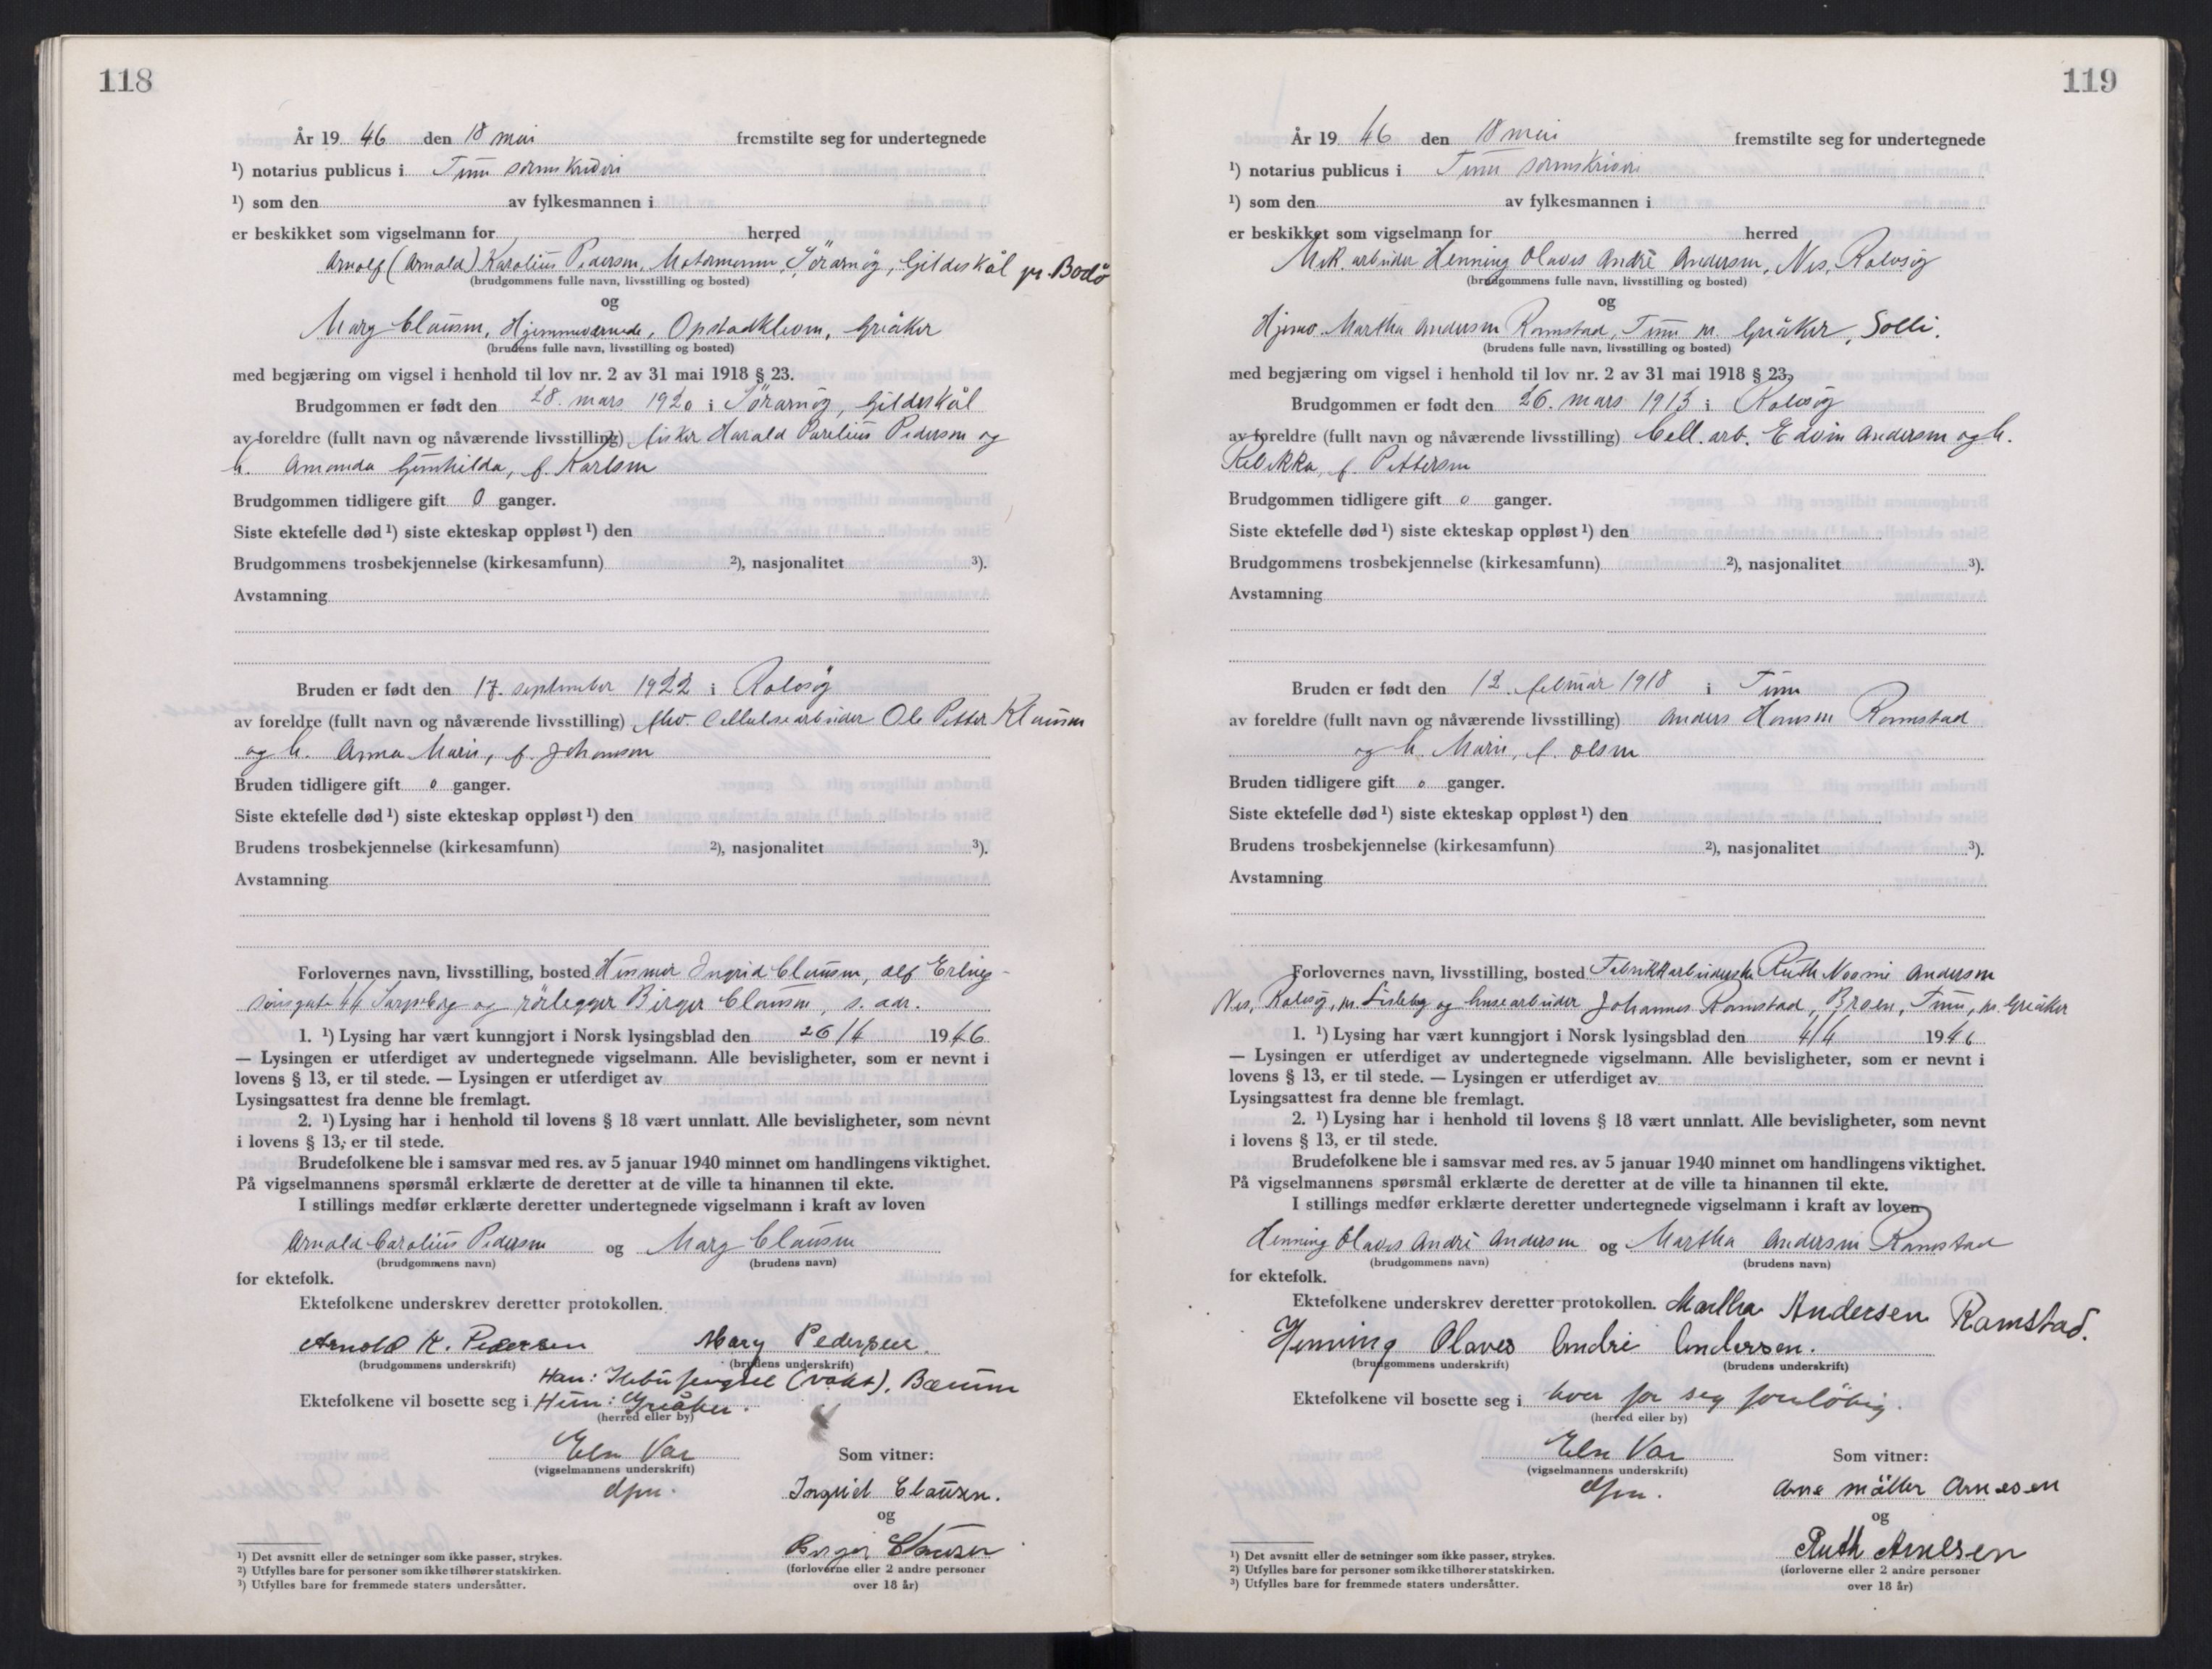 118
År 19 46 den 18 mai fremstilte seg for undertegnede
¹) notarius publicus i Tune sorenskriveri
¹) som den av fylkesmannen i
er beskikket som vigselmann for herred
Arnolf (Arnold) Karolius Pedersen, Motormann, Sörarnöy, Gildeskål pr. Bodö
(brudgommens fulle navn, livsstilling og bosted)
og
Mary Clausen, Hjemmeværende, Opstadkleven, Greåker
(brudens fulle navn, livsstilling og bosted)
med begjæring om vigsel i henhold til lov nr. 2 av 31 mai 1918 § 23.
Brudgommen er født den 28. mars 1920 i Sörarnöy, Gildeskål
av foreldre (fullt navn og nåværende livsstilling) fisker Harald Parelius Pedersen og
h. Amanda Gunhilda, f. Karlsen
Brudgommen tidligere gift 0 ganger.
Siste ektefelle død ¹) siste ekteskap oppløst ¹) den
Brudgommens trosbekjennelse (kirkesamfunn) ²), nasjonalitet ³).
Avstamning
Bruden er født den 17. september 1922 i Rolvsöy
av foreldre (fullt navn og nåværende livsstilling) fhv. Cellulosearbeider Ole Petter Klausen
og h. Anna Marie, f. Johansen
Bruden tidligere gift 0 ganger.
Siste ektefelle død ¹) siste ekteskap oppløst ¹) den
Brudens trosbekjennelse (kirkesamfunn) ²), nasjonalitet ³).
Avstamning
Forlovernes navn, livsstilling, bosted Husmor Ingrid Clausen, Alf Erlings-
sonsgate 44 Sarpsborg og rörlegger Birger Clausen, s. adr.
1. ¹) Lysing har vært kunngjort i Norsk lysingsblad den 26/4 1946
— Lysingen er utferdiget av undertegnede vigselmann. Alle bevisligheter, som er nevnt i
lovens § 13, er til stede. — Lysingen er utferdiget av
Lysingsattest fra denne ble fremlagt.
2. ¹) Lysing har i henhold til lovens § 18 vært unnlatt. Alle bevisligheter, som nevnt
i lovens § 13, er til stede.
Brudefolkene ble i samsvar med res. av 5 januar 1940 minnet om handlingens viktighet.
På vigselmannens spørsmål erklærte de deretter at de ville ta hinannen til ekte.
I stillings medfør erklærte deretter undertegnede vigselmann i kraft av loven
Arnold Carolius Pedersen og Mary Clausen
(brudgommens navn) (brudens navn)
for ektefolk.
Ektefolkene underskrev deretter protokollen.
Arnold K. Pedersen Mary Pedersen.
(brudgommens underskrift) (brudens underskrift)
Han: Ilebu fengsel (vakt), Bærum
Ektefolkene vil bosette seg i Hun: Greåker.
(herred eller by)
Som vitner:
(vigselmannens underskrift)
Ingrid Clausen.
og
Birger Clausen
(forloverne eller 2 andre personer
over 18 år)
¹) Det avsnitt eller de setninger som ikke passer, strykes.
²) Utfylles bare for personer som ikke tilhører statskirken.
³) Utfylles bare for fremmede staters undersåtter.
119
År 19 46 den 18 mai fremstilte seg for undertegnede
¹) notarius publicus i Tune sorenskriveri
¹) som den av fylkesmannen i
er beskikket som vigselmann for herred
Mek. arbeider Henning Olaves André Andersen, Nes, Rolvsöy
(brudgommens fulle navn, livsstilling og bosted)
og
Hjemv. Martha Andersen Ramstad, Tune pr. Greåker, Solli.
(brudens fulle navn, livsstilling og bosted)
med begjæring om vigsel i henhold til lov nr. 2 av 31 mai 1918 § 23.
Brudgommen er født den 26. mars 1913 i Rolvsöy
av foreldre (fullt navn og nåværende livsstilling) Cell. arb. Edvin Andersen og h.
Rebekka, f. Pettersen
Brudgommen tidligere gift 0 ganger.
Siste ektefelle død ¹) siste ekteskap oppløst ¹) den
Brudgommens trosbekjennelse (kirkesamfunn) ²), nasjonalitet ³).
Avstamning
Bruden er født den 12. februar 1918 i Tune
av foreldre (fullt navn og nåværende livsstilling) Anders Hansen Ramstad
og h. Marie, f. Olsen
Bruden tidligere gift 0 ganger.
Siste ektefelle død ¹) siste ekteskap oppløst ¹) den
Brudens trosbekjennelse (kirkesamfunn) ²), nasjonalitet ³).
Avstamning
Forlovernes navn, livsstilling, bosted Fabrikkarbeiderske Ruth Noomi Andersen
Nes, Rolvsöy, pr. Lisleby og husearbeider Johannes Ramstad, Bråen, Tune, pr. Greåker
1. ¹) Lysing har vært kunngjort i Norsk lysingsblad den 4/4 1946
— Lysingen er utferdiget av undertegnede vigselmann. Alle bevisligheter, som er nevnt i
lovens § 13, er til stede. — Lysingen er utferdiget av
Lysingsattest fra denne ble fremlagt.
2. ¹) Lysing har i henhold til lovens § 18 vært unnlatt. Alle bevisligheter, som nevnt
i lovens § 13, er til stede.
Brudefolkene ble i samsvar med res. av 5 januar 1940 minnet om handlingens viktighet.
På vigselmannens spørsmål erklærte de deretter at de ville ta hinannen til ekte.
I stillings medfør erklærte deretter undertegnede vigselmann i kraft av loven
Henning Olaves André Andersen og Martha Andersen Ramstad
(brudgommens navn) (brudens navn)
for ektefolk.
Ektefolkene underskrev deretter protokollen. Martha Andersen Ramstad.
Henning Olaves Andre Andersen.
(brudgommens underskrift) (brudens underskrift)
Ektefolkene vil bosette seg i hver for seg foreløbig.
(herred eller by)
Som vitner:
(vigselmannens underskrift)
Arne Möller Arnesen
og
Ruth Arnesen
(forloverne eller 2 andre personer
over 18 år)
¹) Det avsnitt eller de setninger som ikke passer, strykes.
²) Utfylles bare for personer som ikke tilhører statskirken.
³) Utfylles bare for fremmede staters undersåtter.